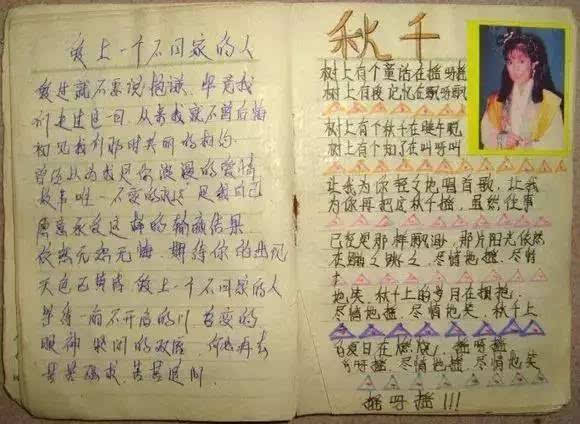 爱上一个不回家的人
爱过就不要说抱歉 毕竟我
们走过这一回 从来我就不曾后悔
初见我们那时共同的相约
曾经以为我是你浪漫的爱情
故事唯一不变的永远 是我自己
愿意承受这样的输赢结果
依然无怨无悔 期待你的出现
天色已黄昏 爱上一个不回家的人
等待一扇不开启的门 善变的
眼神 紧闭的双唇 何必再去
苦苦强求 苦苦追问
秋千
树上有个童话在摇呀摇
树上有段记忆在飘呀飘
树上有个秋千在睡午觉
树上有个知了在叫呀叫
让我为你轻轻地唱首歌, 让我
为你再把这秋千摇, 虽然往事
已经是那样飘渺, 那片阳光依然
在跳跳, 尽情地摇, 尽情
地笑, 秋千上的岁月在拥抱,
尽情地摇, 尽情地笑, 秋千上
的夏日在燃烧, 摇呀摇
尽情地摇, 尽情地笑
摇呀摇!!!